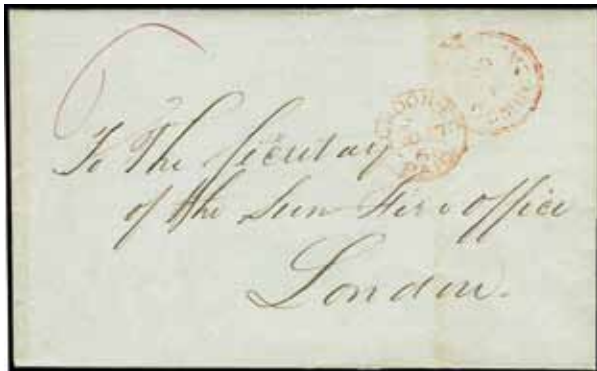 To The Secretary
of the Sun Fire Office
London.
PAID